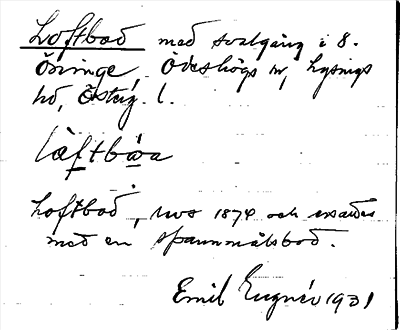 Loftbod med svalgång i S.
Öninge, Ödeshögs sn, Lysings
hd, Österg. l.
làftbòa
Loftbod, revs 1874 och ersattes
med en spannmålsbod.
Emil Engnér 1931